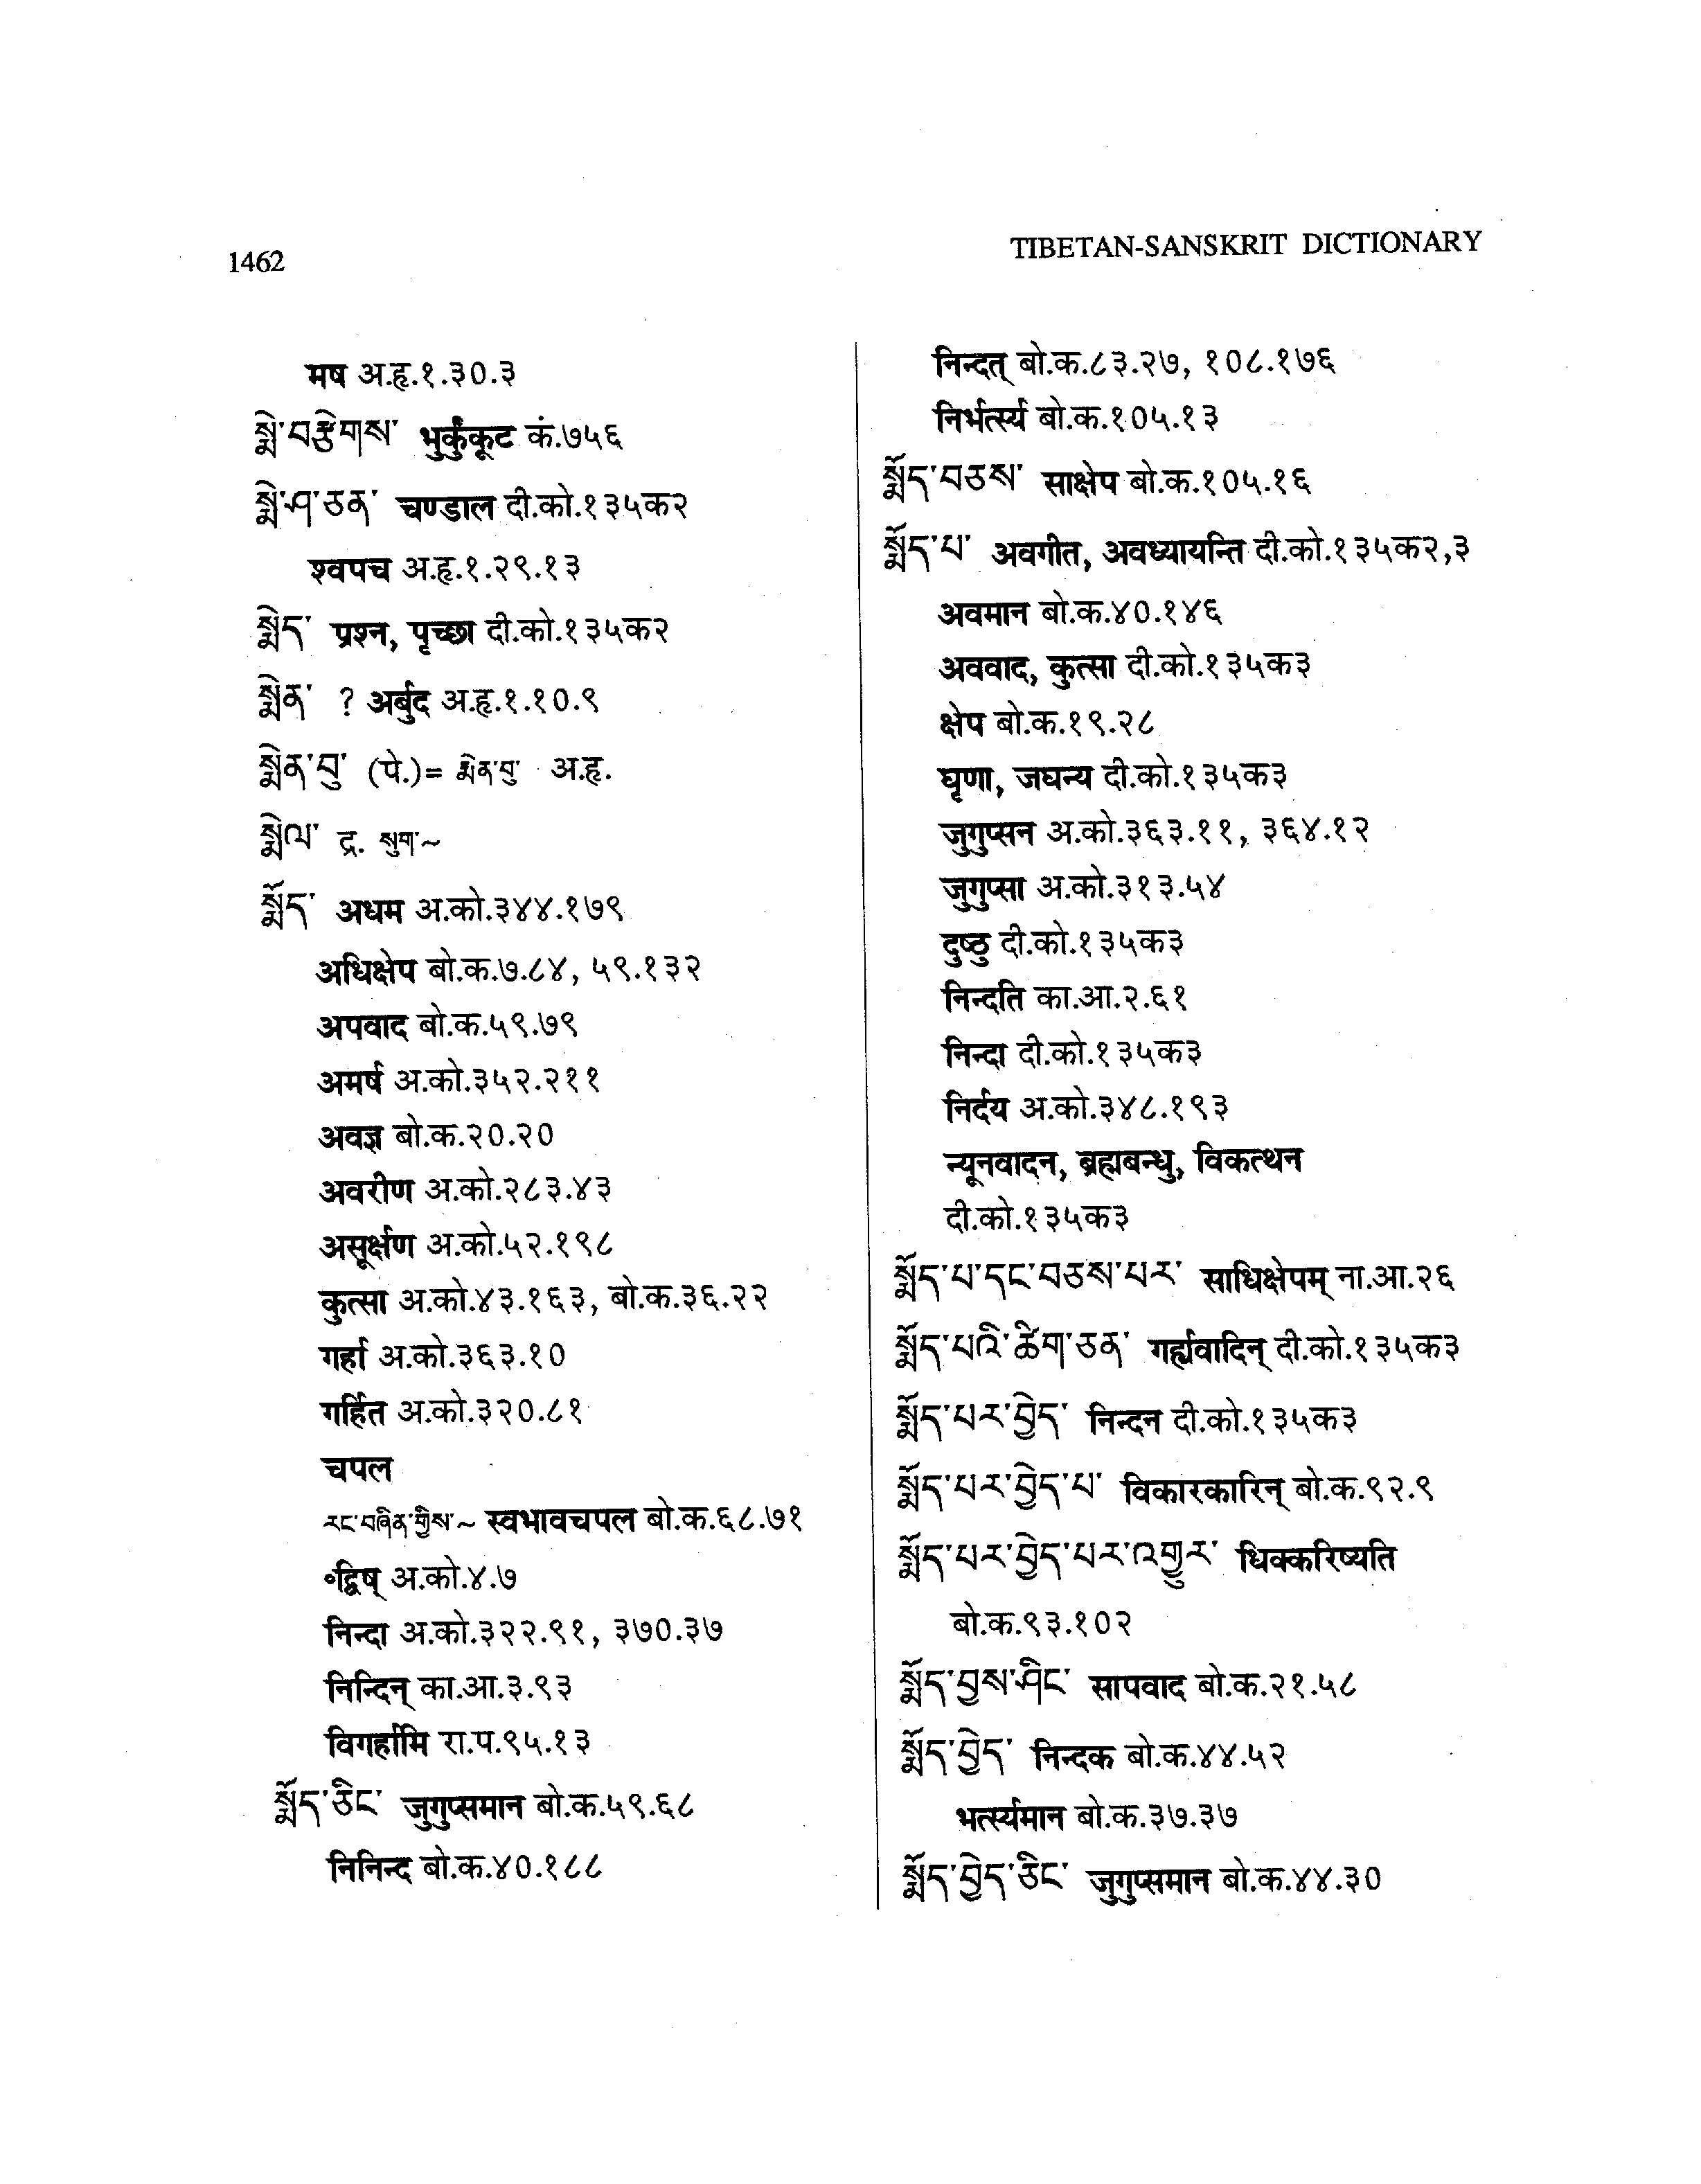 1462
TIBETAN-SANSKRIT DICTIONARY
मष अ.हृ.१.३०.३
སྨེ་བརྩེགས་ भुर्कुंकूट कं.७५६
སྨེ་ཤ་ཅན་ चण्डाल दी.को.१३५क२
श्वपच अ.हृ.१.२९.१३
སྨེད་ प्रश्न, पृच्छा दी.को.१३५क२
སྨེན་ ? अर्बुद अ.हृ.१.१०.९
སྨེན་བུ་ (पे.)= རྨེན་བུ་ अ.हृ.
སྨེལ་ द्र. སུག་~
སྨོད་ अधम अ.को.३४४.१७९
अधिक्षेप बो.क.७.८४, ५९.१३२
अपवाद बो.क.५९.७९
अमर्ष अ.को.३५२.२११
अवज्ञ बो.क.२०.२०
अवरीण अ.को.२८३.४३
असूर्क्षण अ.को.५२.१९८
कुत्सा अ.को.४३.१६३, बो.क.३६.२२
गर्हा अ.को.३६३.१०
गर्हित अ.को.३२०.८१
चपल
རང་བཞིན་གྱིས་~ स्वभावचपल बो.क.६८.७१
॰द्विष् अ.को.४.७
निन्दा अ.को.३२२.९१, ३७०.३७
निन्दिन् का.आ.३.९३
विगर्हामि रा.प.९५.१३
སྨོད་ཅིང་ जुगुप्समान बो.क.५९.६८
निनिन्द बो.क.४०.१८८
निन्दत् बो.क.८३.२७, १०८.१७६
निर्भर्त्स्य बो.क.१०५.१३
སྨོད་བཅས་ साक्षेप बो.क.१०५.१६
སྨོད་པ་ अवगीत, अवध्यायन्ति दी.को.१३५क२,३
अवमान बो.क.४०.१४६
अववाद, कुत्सा दी.को.१३५क३
क्षेप बो.क.१९.२८
घृणा, जघन्य दी.को.१३५क३
जुगुप्सन अ.को.३६३.११, ३६४.१२
जुगुप्सा अ.को.३१३.५४
दुष्ठु दी.को.१३५क३
निन्दति का.आ.२.६१
निन्दा दी.को.१३५क३
निर्दय अ.को.३४८.१९३
न्यूनवादन, ब्रह्मबन्धु, विकत्थन
दी.को.१३५क३
སྨོད་པ་དང་བཅས་པར་ साधिक्षेपम् ना.आ.२६
སྨོད་པའི་ཚིག་ཅན་ गर्ह्यवादिन् दी.को.१३५क३
སྨོད་པར་བྱེད་ निन्दन दी.को.१३५क३
སྨོད་པར་བྱེད་པ་ विकारकारिन् बो.क.९२.९
སྨོད་པར་བྱེད་པར་འགྱུར་ धिक्करिष्यति
बो.क.९३.१०२
སྨོད་བྱས་ཤིང་ सापवाद बो.क.२१.५८
སྨོད་བྱེད་ निन्दक बो.क.४४.५२
भर्त्स्यमान बो.क.३७.३७
སྨོད་བྱེད་ཅིང་ जुगुप्समान बो.क.४४.३०